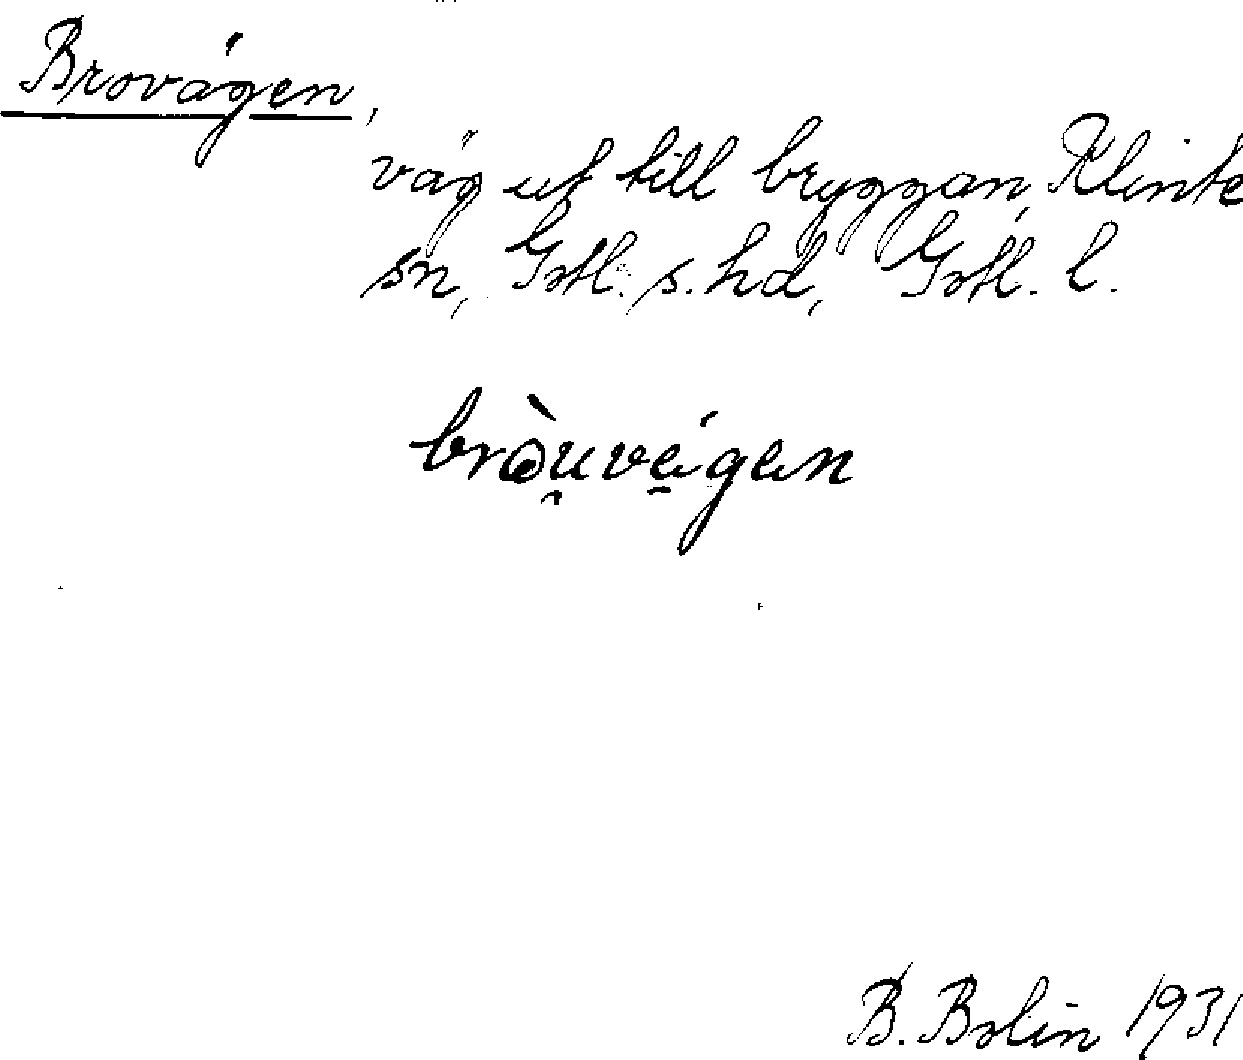 Brovägen,
väg ut till bryggan, Klinte
sn, Gotl. s. hd, Gotl. l.
bròu̯vẹ́gan
B. Bolin 1931